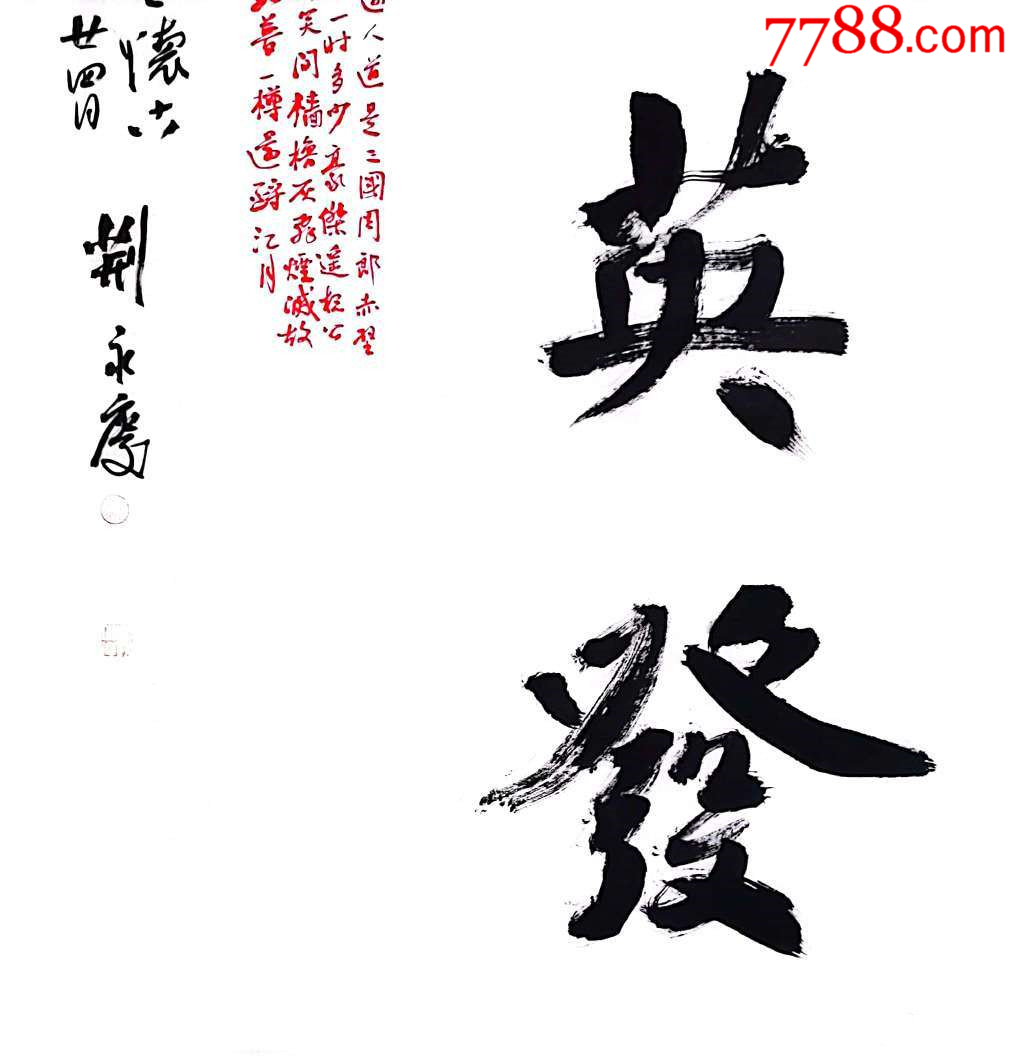 7788.com
英發
人道是三國周郎赤壁
一时多少豪傑遥想公
笑间檣櫓灰飛煙滅故
一樽還酹江月
懷古
廿四日
荆永慶